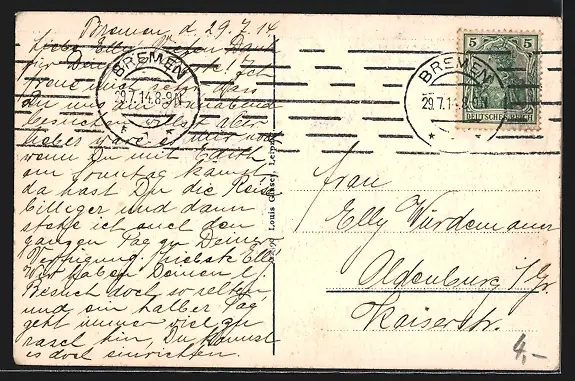 Bremen, d. 29.7.14.
Liebe Elly! Vielen Dank
für Deine Karte! Ich
freue mich, dass
Du uns
besuchen willst aber
lieber wäre es mir noch
wenn Du mit Edith
am Sonntag kämst
da hast Du die Reise
billiger und dann
stehe ich auch den
ganzen Tag zu Deiner
Verfügung. Liebste Elly
Wir haben Deinen l.
Besuch doch so selten
und ein halber Tag
geht immer viel zu
rasch hin, Du kannst
es doch einrichten.
BREMEN
29.7.14.8-9N
Louis Glaser, Leipzig
BREMEN
29.7.14.8-9N
5 5
DEUTSCHES REICH
Frau
Elly Würdemann
Oldenburg i/Gr
Kaiserstr.
4,-